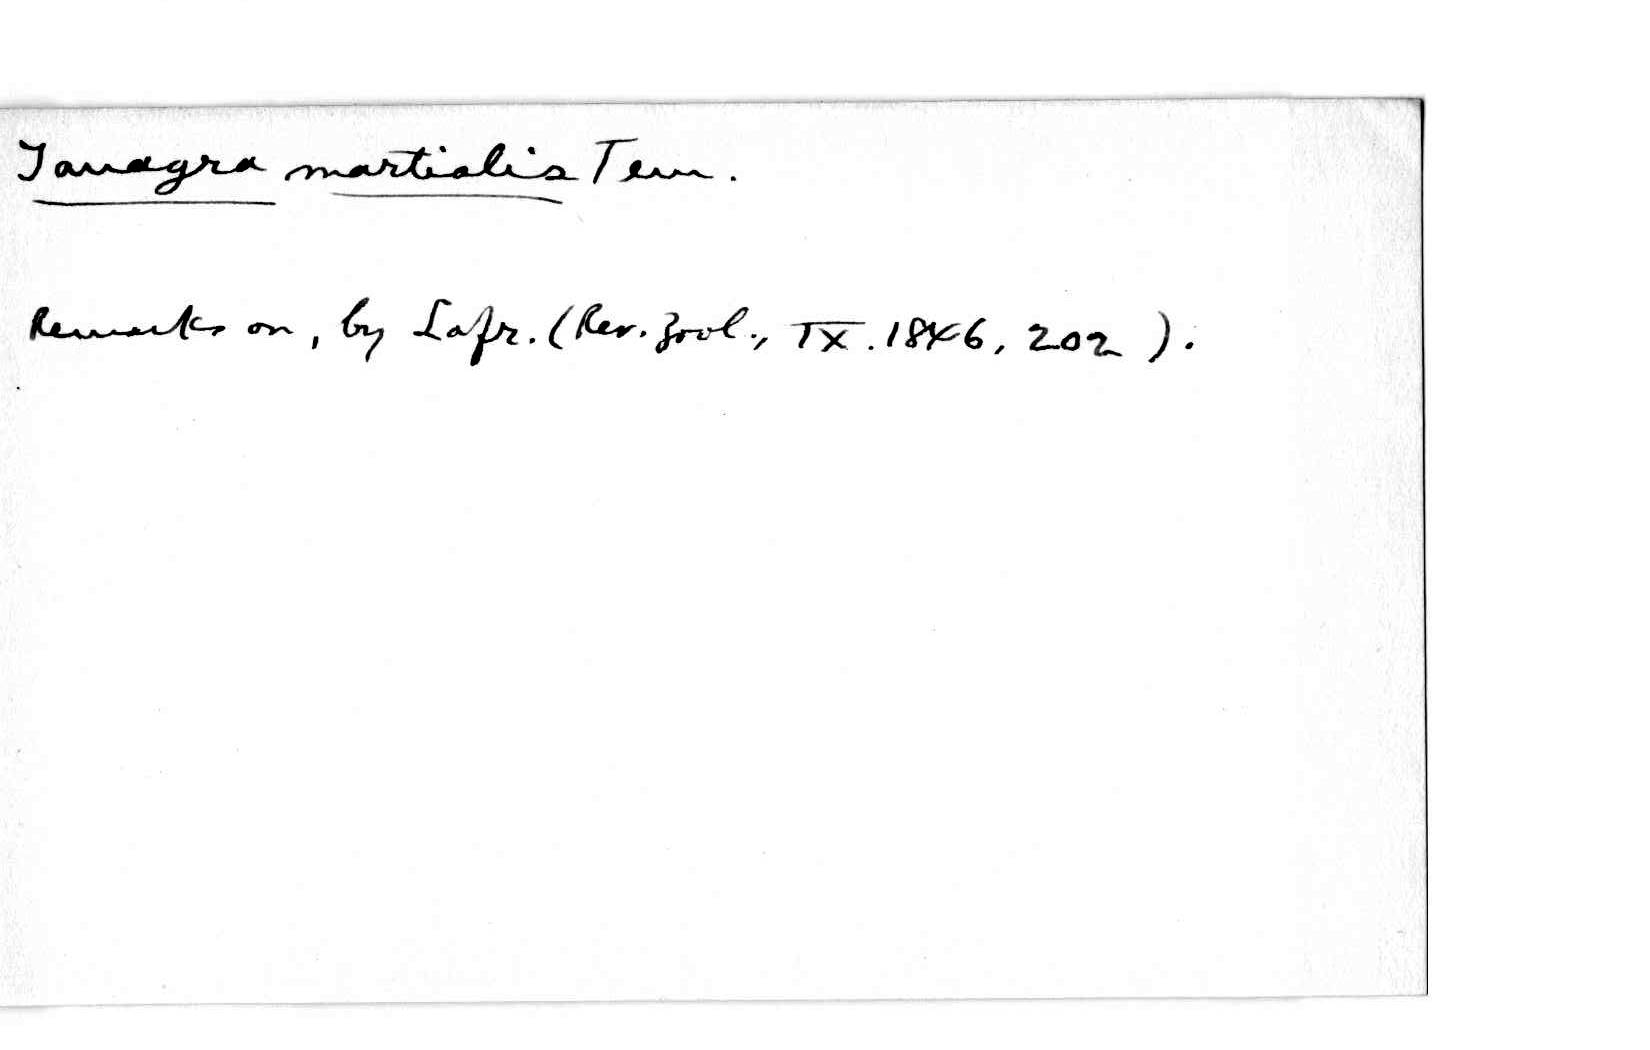 Tanagra martialis Tem.
Remarks on, by Lafr. (Rev. Zool., IX. 1846, 202).